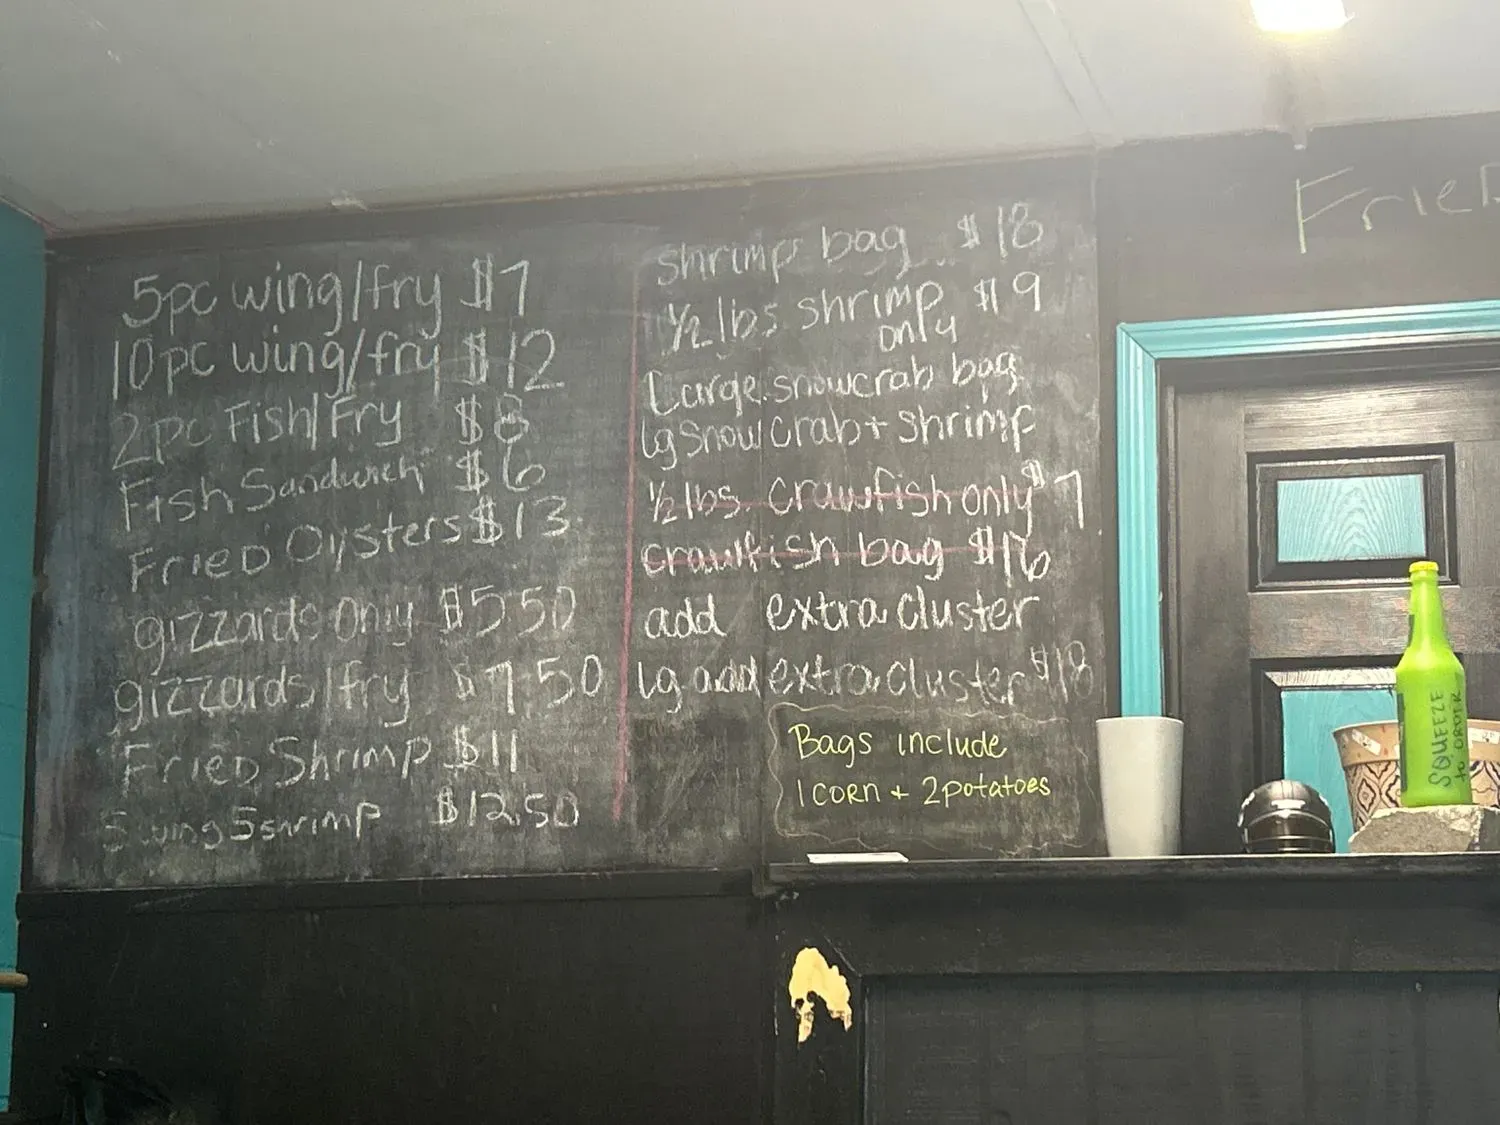 5pc wing/fry $7
10pc wing/fry $12
2pc Fish/Fry $8
Fish Sandwich $6
Fried Oysters $13
gizzards only $5.50
gizzards/fry $7.50
Fried Shrimp $11
5 wing 5 shrimp $12.50
shrimp bag $18
1/2 lbs shrimp $9
only
Large snowcrab bag
lg snow crab + shrimp
1/2 lbs. crawfish only $7
crawfish bag $16
add extra cluster
lg add extra cluster $18
Bags include
1 corn + 2 potatoes
Fried
SQUEEZE
to ORDER